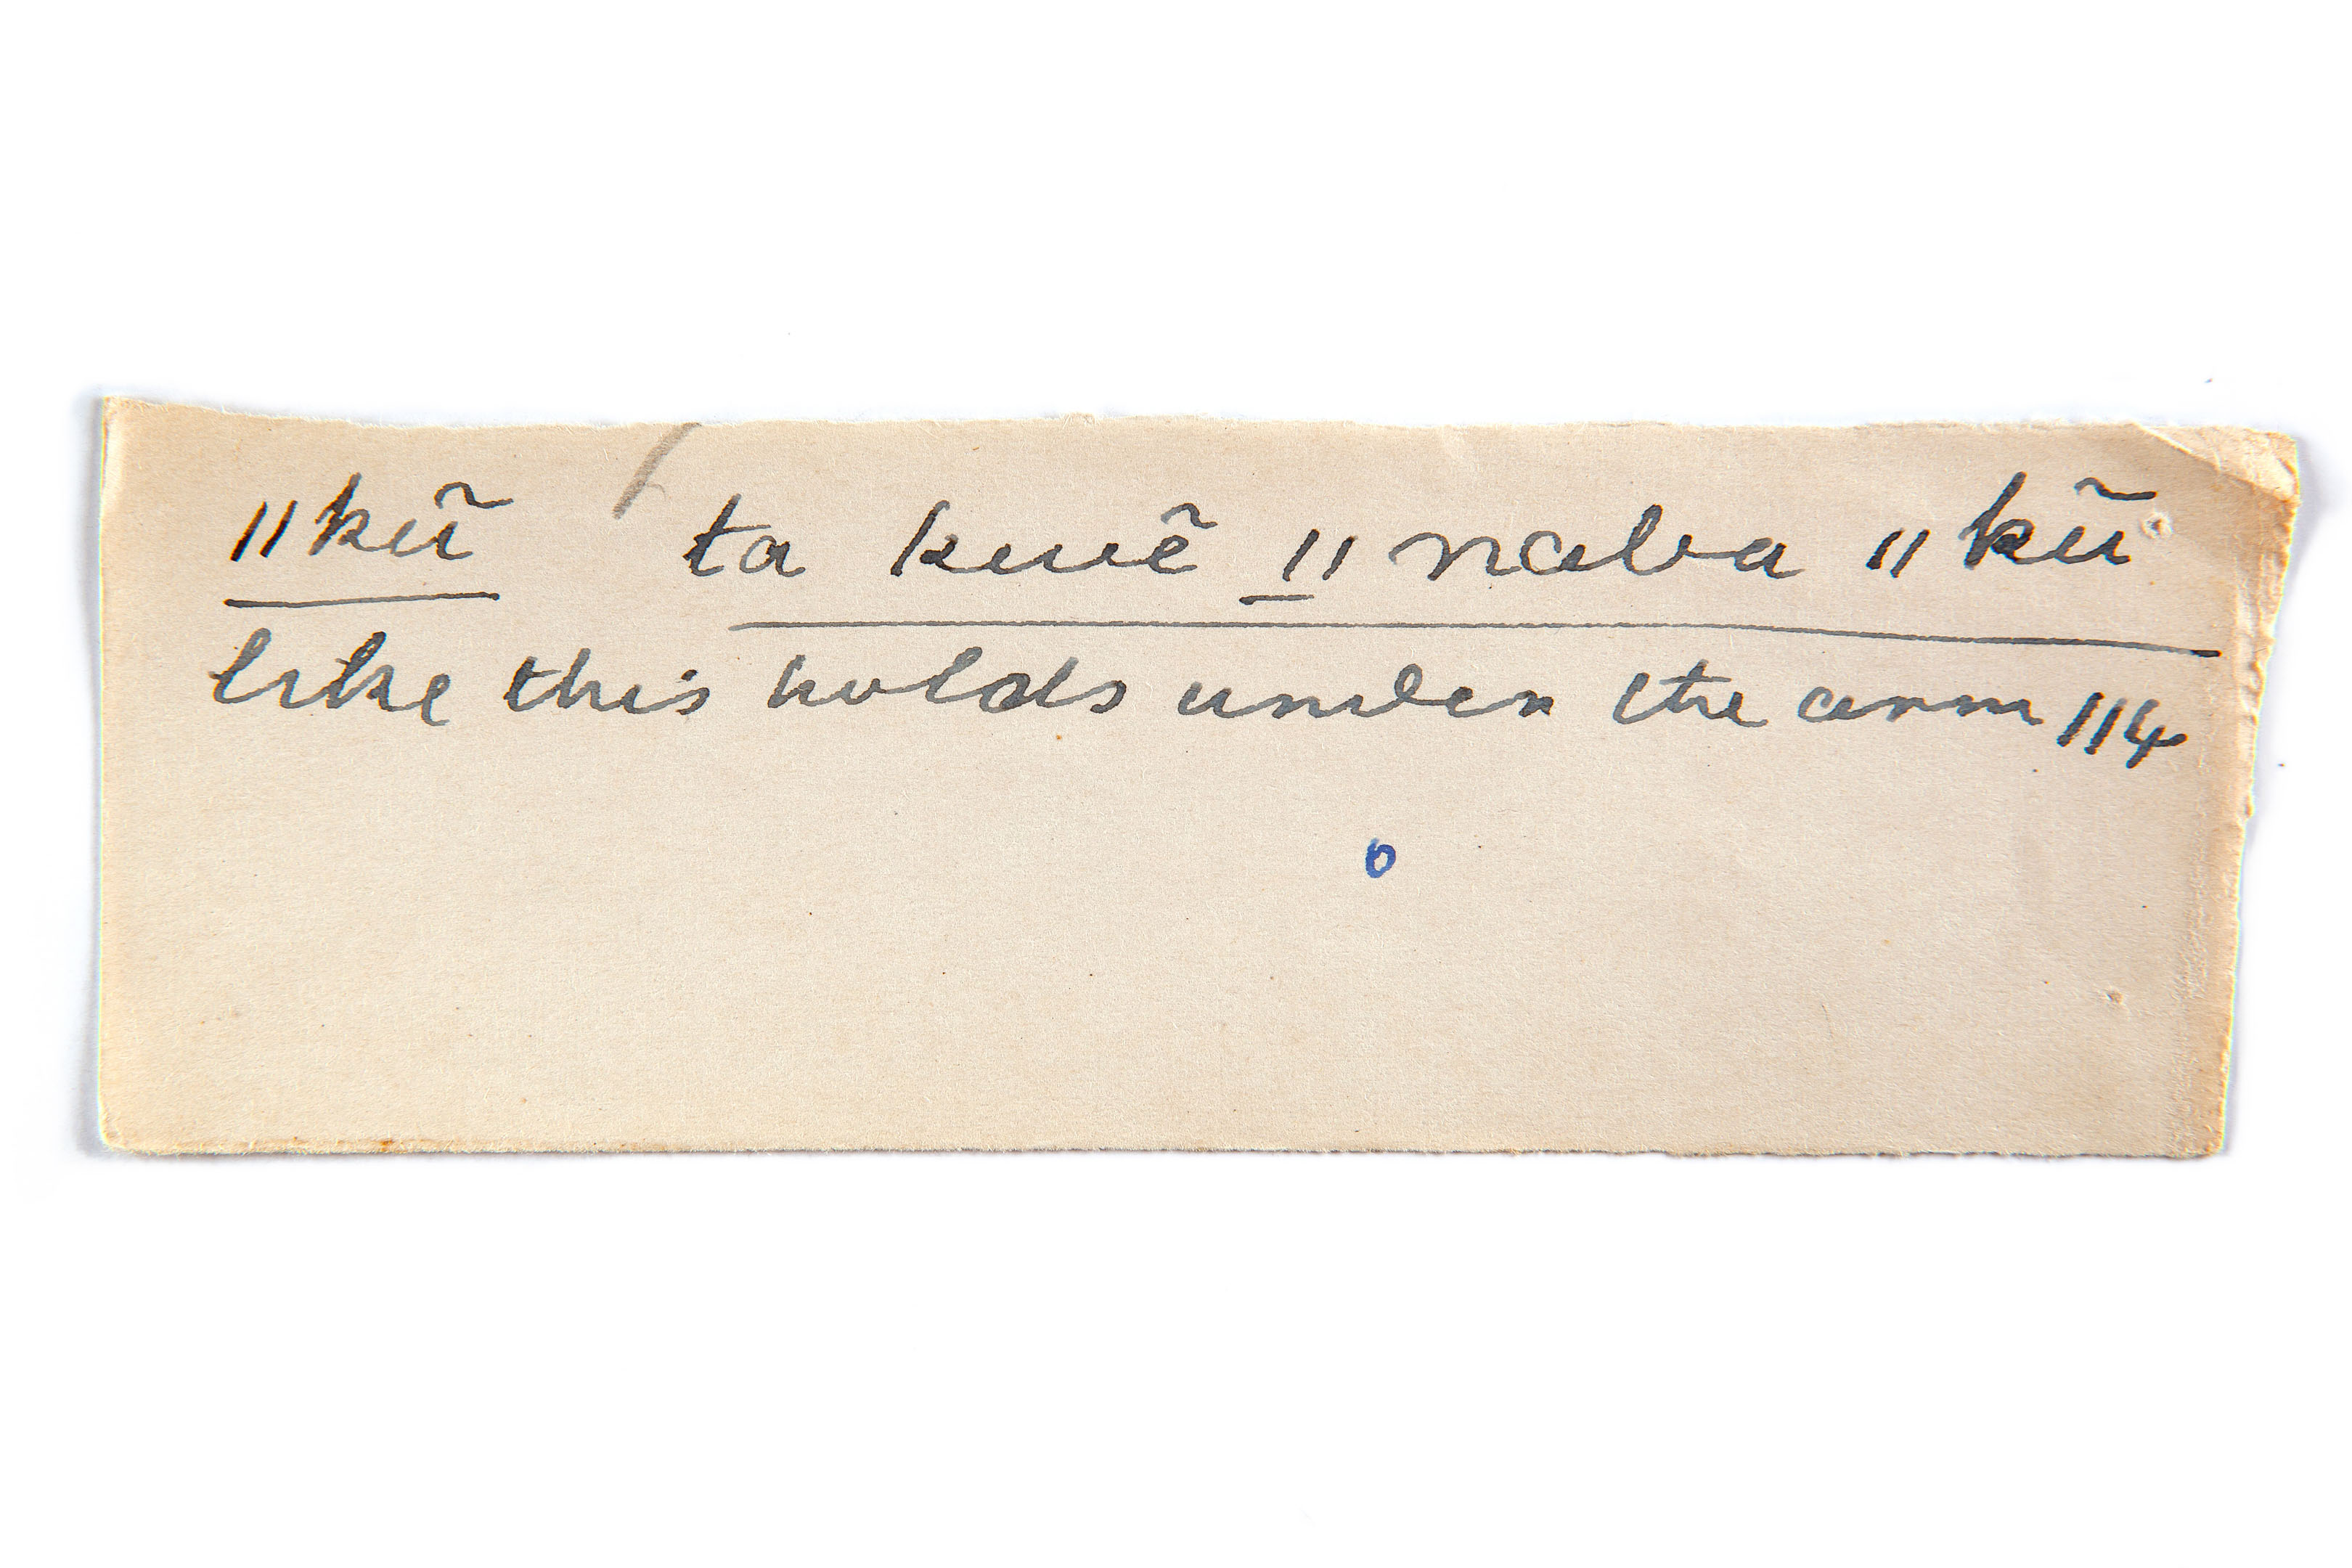 ǁkũ ta kuẽ ǁnaba ǁkũ
like this holds under the arm 114
o